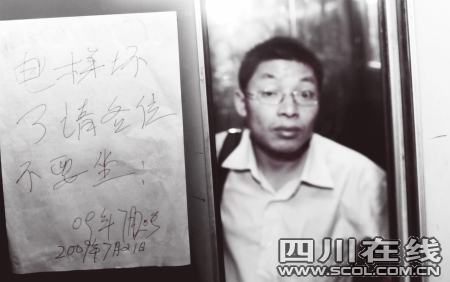 电样坏
了请各位
不要坐！
09年7月
2009年7月21日
四川在线
WWW.SCOL.COM.CN